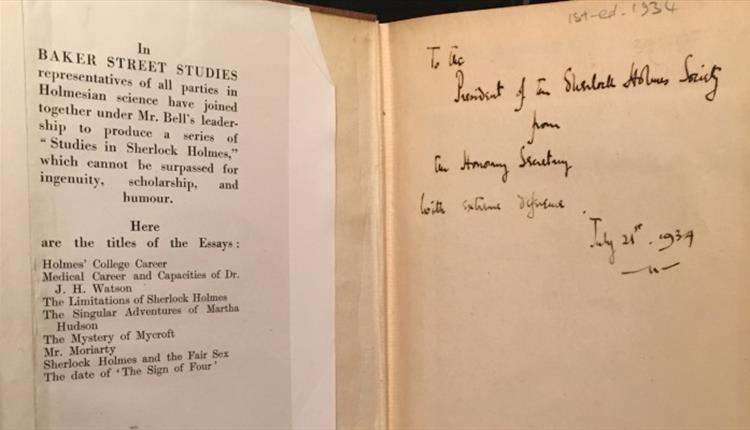 In
BAKER STREET STUDIES
representatives of all parties in
Holmesian science have joined
together under Mr. Bell's leader-
ship to produce a series of
“ Studies in Sherlock Holmes,”
which cannot be surpassed for
ingenuity, scholarship, and
humour.
Here
are the titles of the Essays :
Holmes' College Career
Medical Career and Capacities of Dr.
J. H. Watson
The Limitations of Sherlock Holmes
The Singular Adventures of Martha
Hudson
The Mystery of Mycroft
Mr. Moriarty
Sherlock Holmes and the Fair Sex
The date of ‘The Sign of Four’
1st-ed. 1934
To the
President of the Sherlock Holmes Society
from
the Honorary Secretary
with extreme deference.
July 21st. 1934